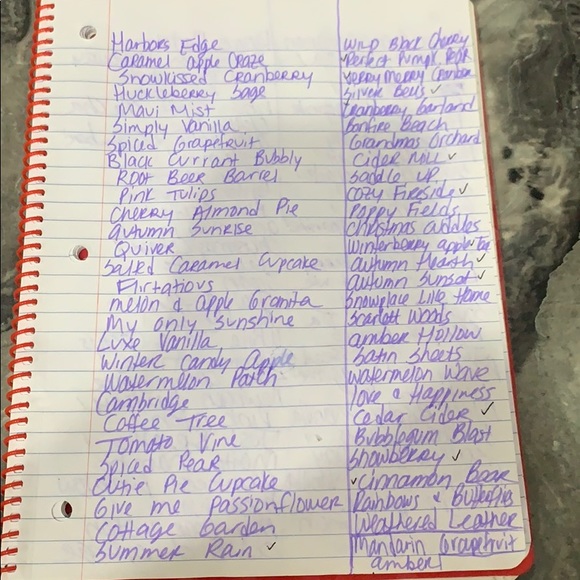 Harbors Edge
Caramel apple Craze
Snowkissed Cranberry
Huckleberry Sage
Maui Mist
Simply Vanilla
Spiced Grapefruit
Black Currant Bubbly
Root Beer Barrel
Pink Tulips
Cherry Almond Pie
autumn Sunrise
Quiver
Salted Caramel Cupcake
Flirtatious
melon & apple Granita
My only Sunshine
Luxe Vanilla
Winter Candy Apple
Watermelon Patch
Cambridge
Coffee Tree
Tomato Vine
Spiced Pear
Cutie Pie Cupcake
Give me passionflower
Cottage Garden
Summer Rain ✓
Wild Black Cherry
Perfect Pumpk Pear
Verry Merry Cranber
Silver Bells ✓
Cranberry Garland
Bonfire Beach
Grandmas Orchard
Cider Mill ✓
Saddle up
Cozy Fireside ✓
Poppy Fields
Christmas cuddles
Winterberry apple Tea
autumn Hearth ✓
autumn Sunset ✓
Snowplace Like Home
Scarlett Woods
amber Hollow
Satin Sheets
Watermelon Wave
love & Happiness
Cedar Cider ✓
Bubblegum Blast
Snowberry ✓
✓Cinnamon Bear
Rainbows & Butterflies
Weathered Leather
Mandarin Grapefruit
amber